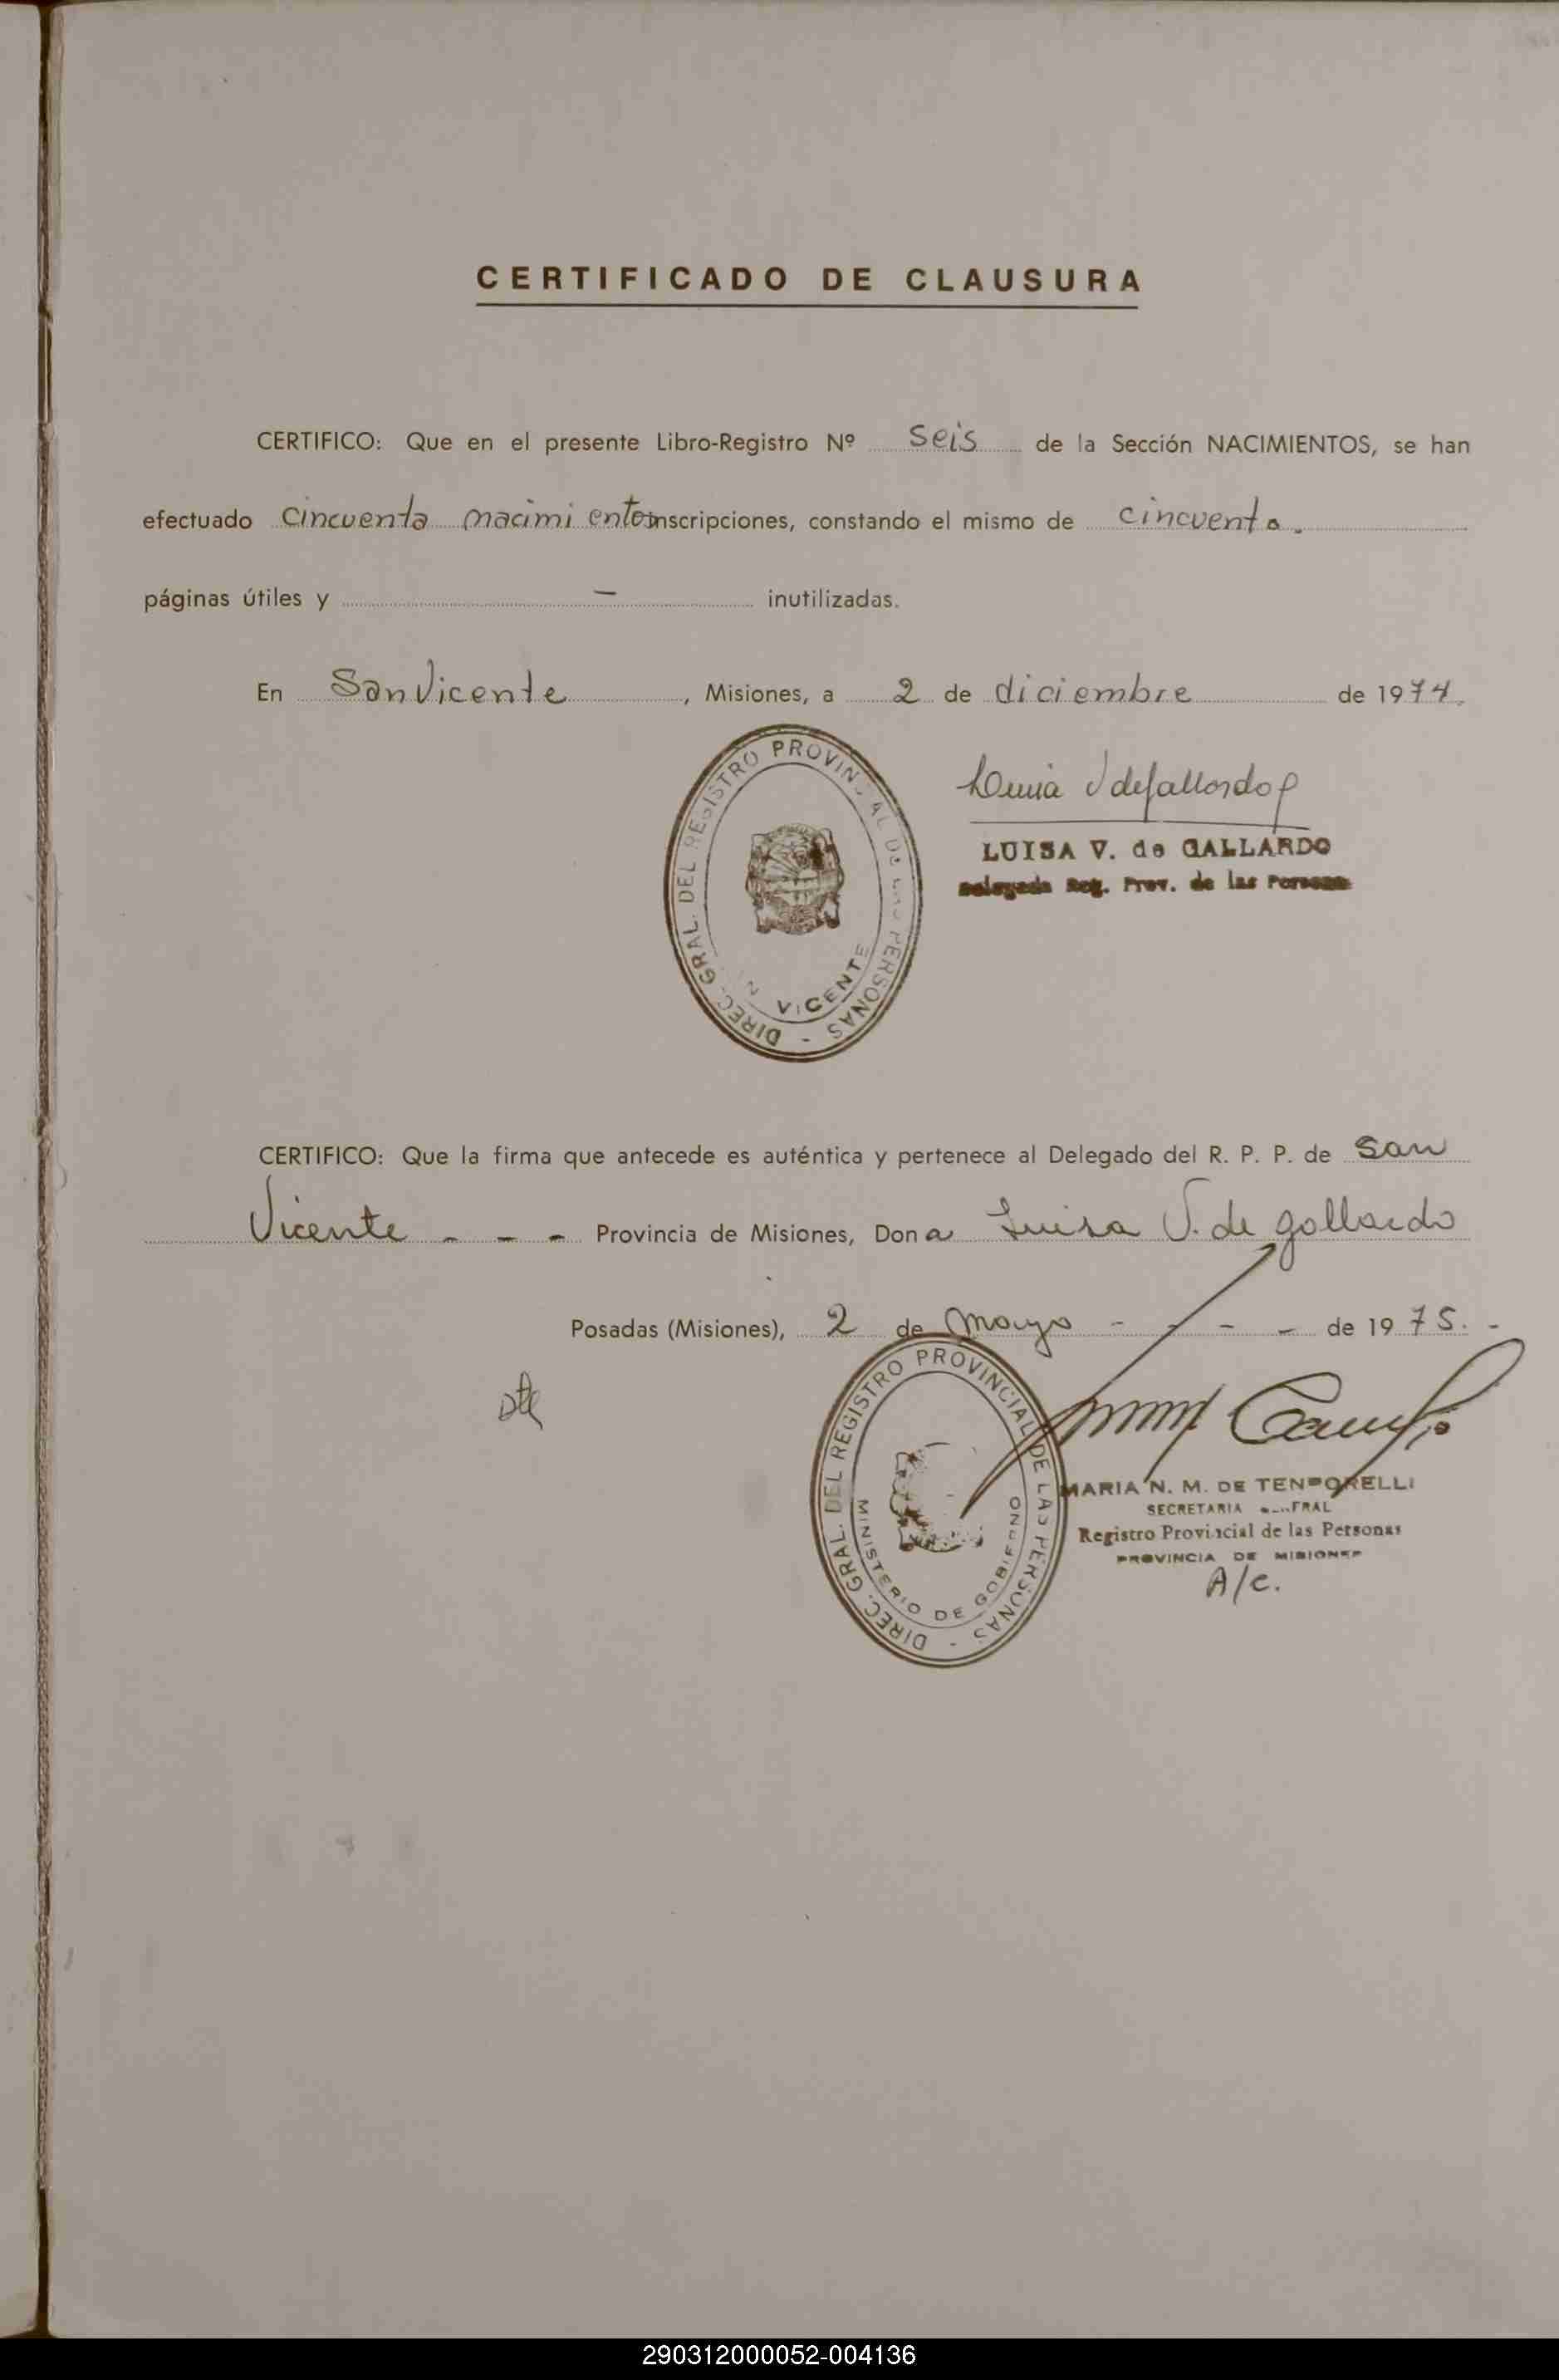 CERTIFICADO DE CLAUSURA
CERTIFICO: Que en el presente Libro-Registro Nº seis de la Sección NACIMIENTOS, se han
efectuado cincuenta nacimientos inscripciones, constando el mismo de cincuenta.
páginas útiles y — inutilizadas.
En San Vicente, Misiones, a 2 de diciembre de 1974.
DIREC. GRAL. DEL REGISTRO PROVINCIAL DE LAS PERSONAS -
VICENTE
LUISA V. de GALLARDO
Delegada Reg. Prov. de las Personas
CERTIFICO: Que la firma que antecede es auténtica y pertenece al Delegado del R. P. P. de San
Vicente - - - Provincia de Misiones, Dona Luisa V. de gallardo
Posadas (Misiones), 2 de mayo - - - - de 1975. -
DIREC. GRAL. DEL REGISTRO PROVINCIAL DE LAS PERSONAS -
MINISTERIO DE GOBIERNO
MARIA N. M. DE
SECRETARIA
Registro Provincial de las Personas
PROVINCIA DE MISIONES
A/c.
290312000052-004136